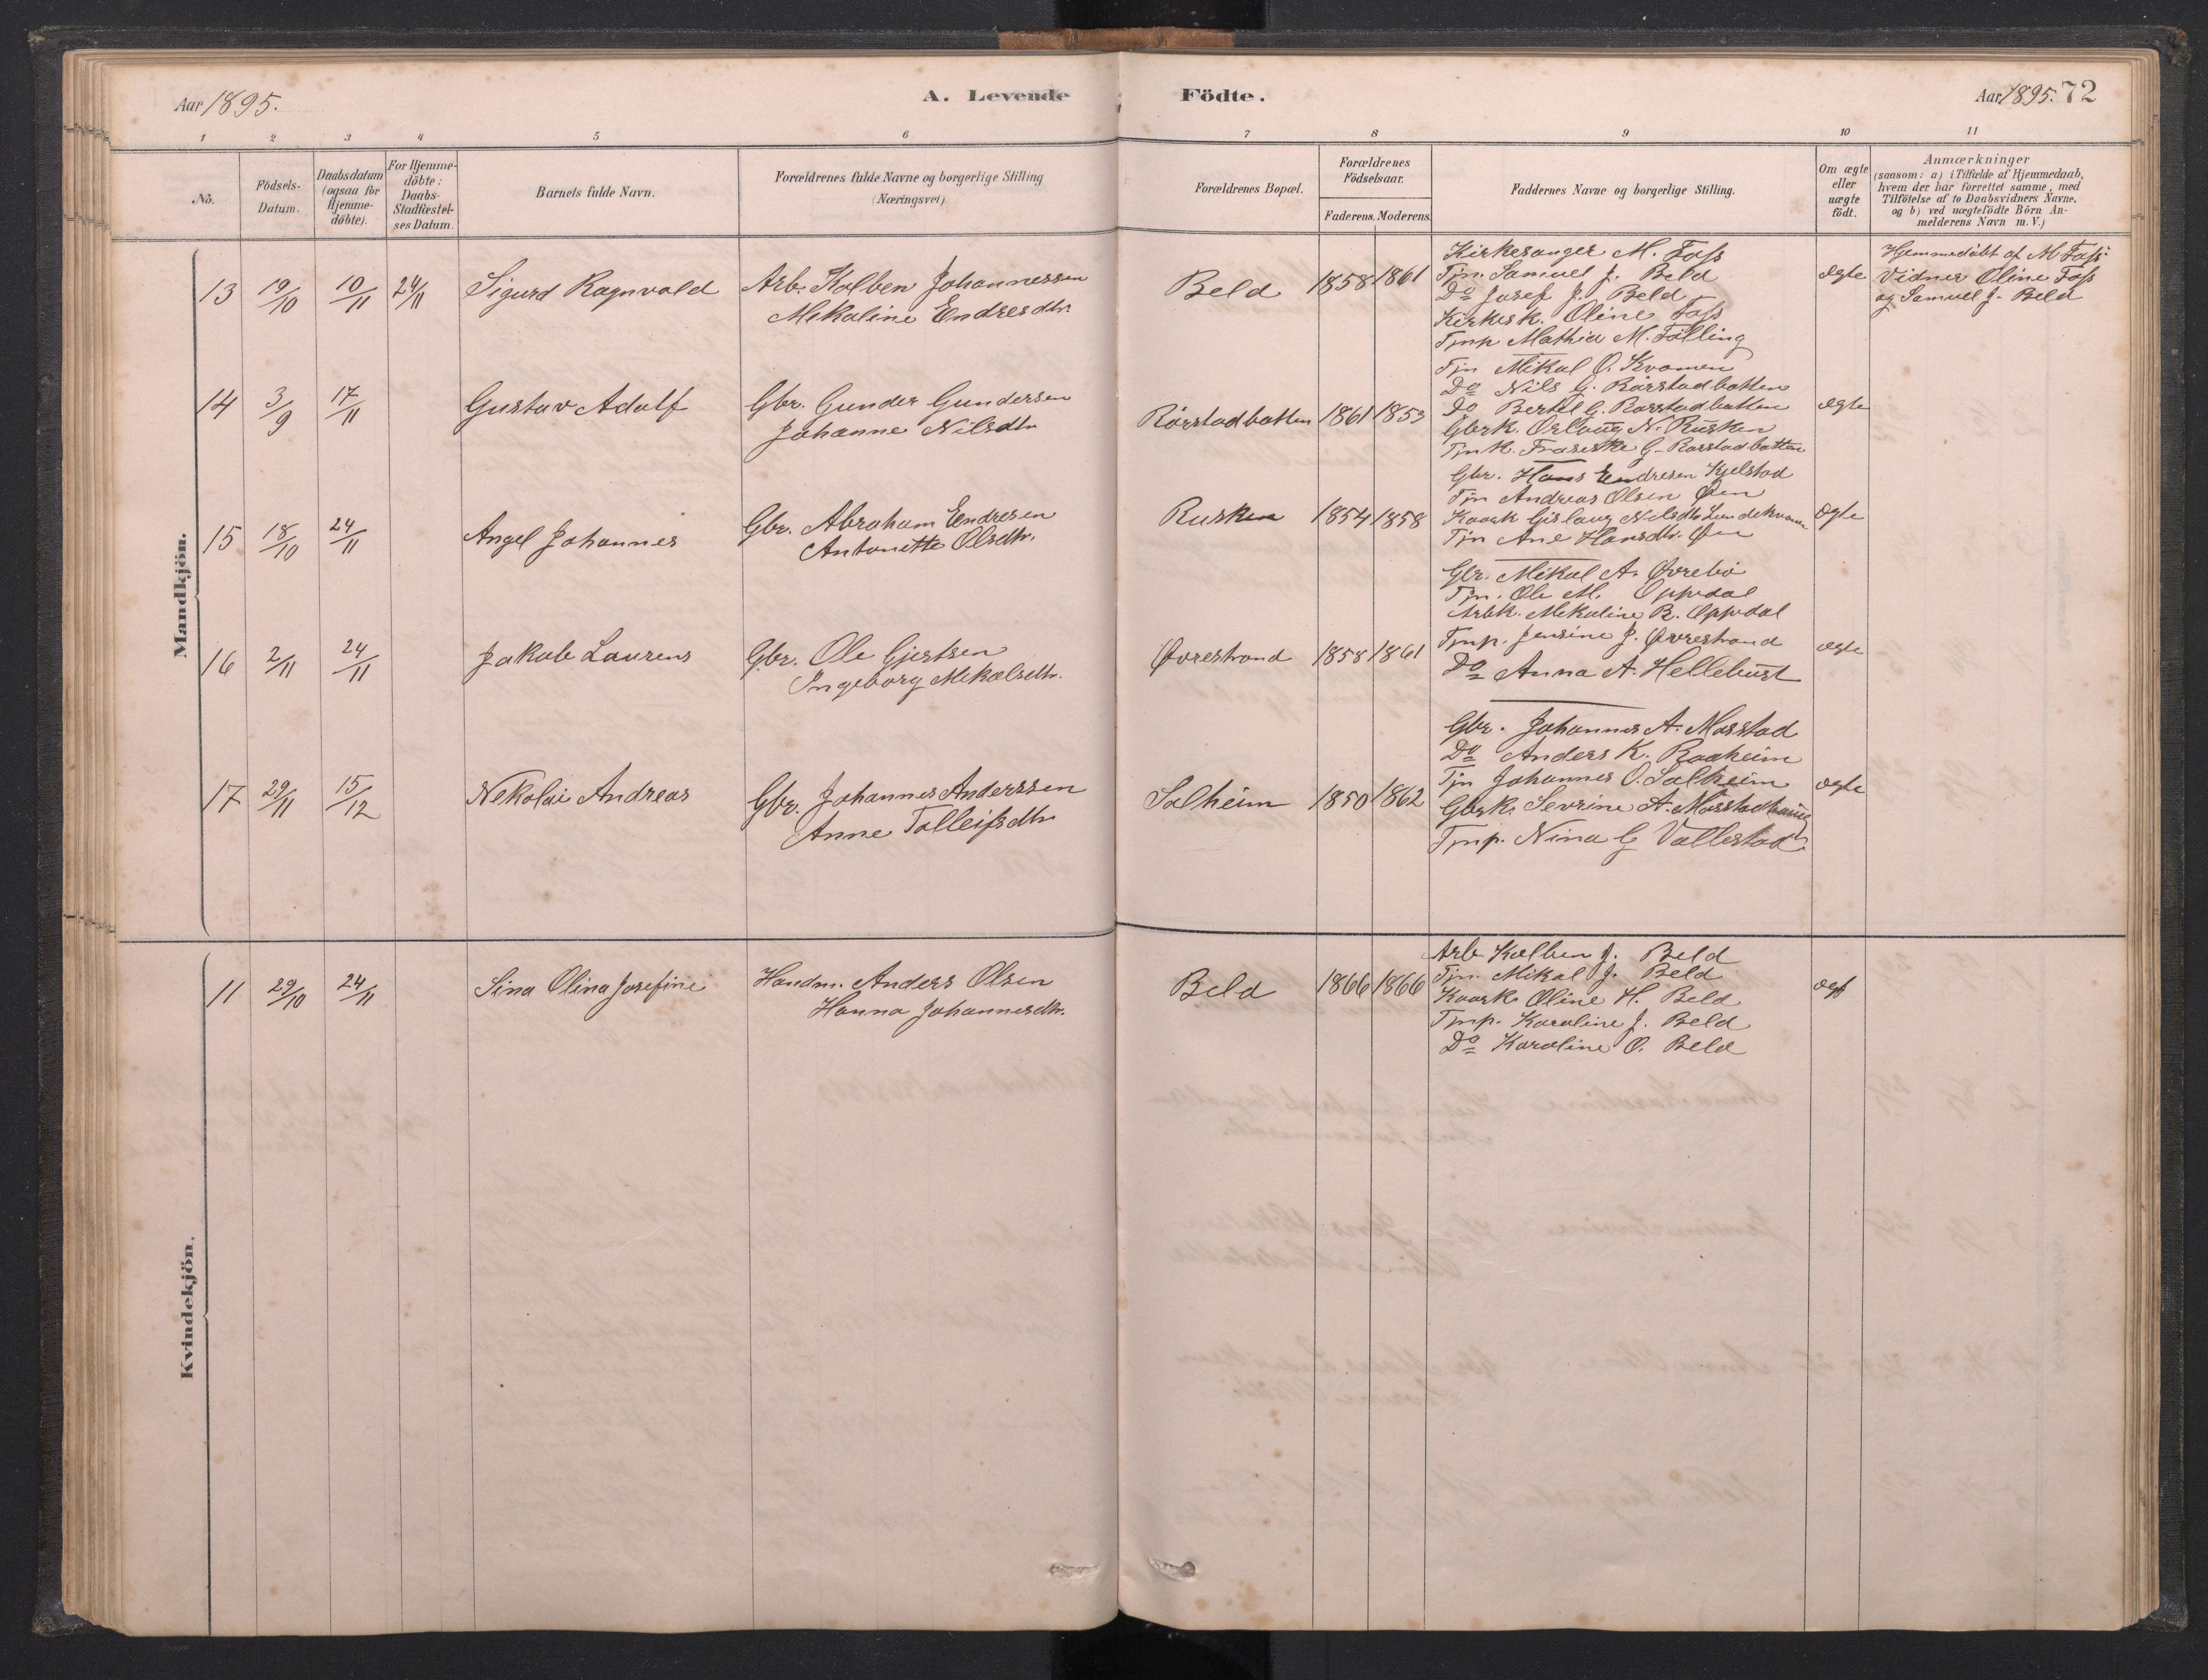 Aar 1895.
A. Levende Födte.
Aar 1895. 72
1 2 3 4 5 6 7 8 9 10 11
No.
Födsels-Datum.
Daabsdatum (ogsaa for Hjemme-döbte).
For Hjemme-döbte: Daabs-Stadfæstel-ses Datum.
Barnets fulde Navn.
Forældrenes fulde Navne og borgerlige Stilling (Næringsvei)
Forældrenes Bopæl.
Forældrenes Födselsaar.
Faderens. Moderens.
Faddernes Navne og borgerlige Stilling.
Om ægte eller uægte födt.
Anmærkninger
(saasom: a) i Tilfælde af Hjemmedaab,
hvem der har forrettet samme, med
Tilföielse af to Daabsvidners Navne,
og b) ved uægtefödte Börn An-
melderens Navn m. V.)
Mandkjön.
13 19/10 10/11 24/11 Sigurd Ragnvald
Arb. Kolben Johannessen
Mekaline Endresdtr.
Beld 1858 1861
Kirkesanger M. Foss
Tjn. Samuel J. Beld
Do Josef J. Beld
Kirkesk. Oline Foss
Tjnp Mathia M. Tolling
ægte
Hjemmedöbt af M Foss:
Vidner Oline Foss
og Samuel J. Beld
14 3/9 17/11 Gustav Adolf
Gbr. Gunder Gundersen
Johanne Nilsdtr
Rörstadbotten 1861 1853
Tjn Mikal O. Kvamen
Do Nils G. Rörstadbotten
Do Bertel G. Rorstadbotten
Gbrk. Orlaug N. Rusken
Tjnk. Fraseske G. Rorstadbotten
ægte
15 18/10 24/11 Angel Johannes
Gbr. Abraham Endresen
Antonette Olsdtr.
Rusken 1854 1858
Gbr. Hans Endresen Kjelstad
Tjn Andreas Olsen Øen
Kaark Gislaug Nilsdtr Lundekvam
Tjn Ane Hansdtr. Øen
ægte
16 2/11 24/11 Jakob Laurens
Gbr. Ole Gjertsen
Ingeborg Mekalsdtr.
Øvrestrand 1858 1861
Gbr. Mikal A. Øvrebö
Tjn. Ole M. Oppedal
Arbk. Mekaline R. Oppedal
Tjnp. Jensine J. Øvrestrand
Do Anna A. Hellebust
ægte
17 29/11 15/12 Nekolai Andreas
Gbr. Johannes Anderssen
Anne Tolleifsdtr
Solheim 1850 1862
Gbr. Johannes A. Masstad
Do Anders K. Raaheim
Tjn Johannes O. Solheim
Gbrk. Sevrine A. Masstadhaug
Tjnp. Nina G Vallestad.
ægte
Kvindekjön.
11 29/10 24/11 Sina Olina Josefine
Handm. Anders Olsen
Hanna Johannesdtr.
Beld 1866 1866
Arb Kolben J. Beld
Tjn. Mikal J. Beld
Kaark Oline H. Beld
Tjnp. Karoline J. Beld
Do Karoline O. Beld
ægt